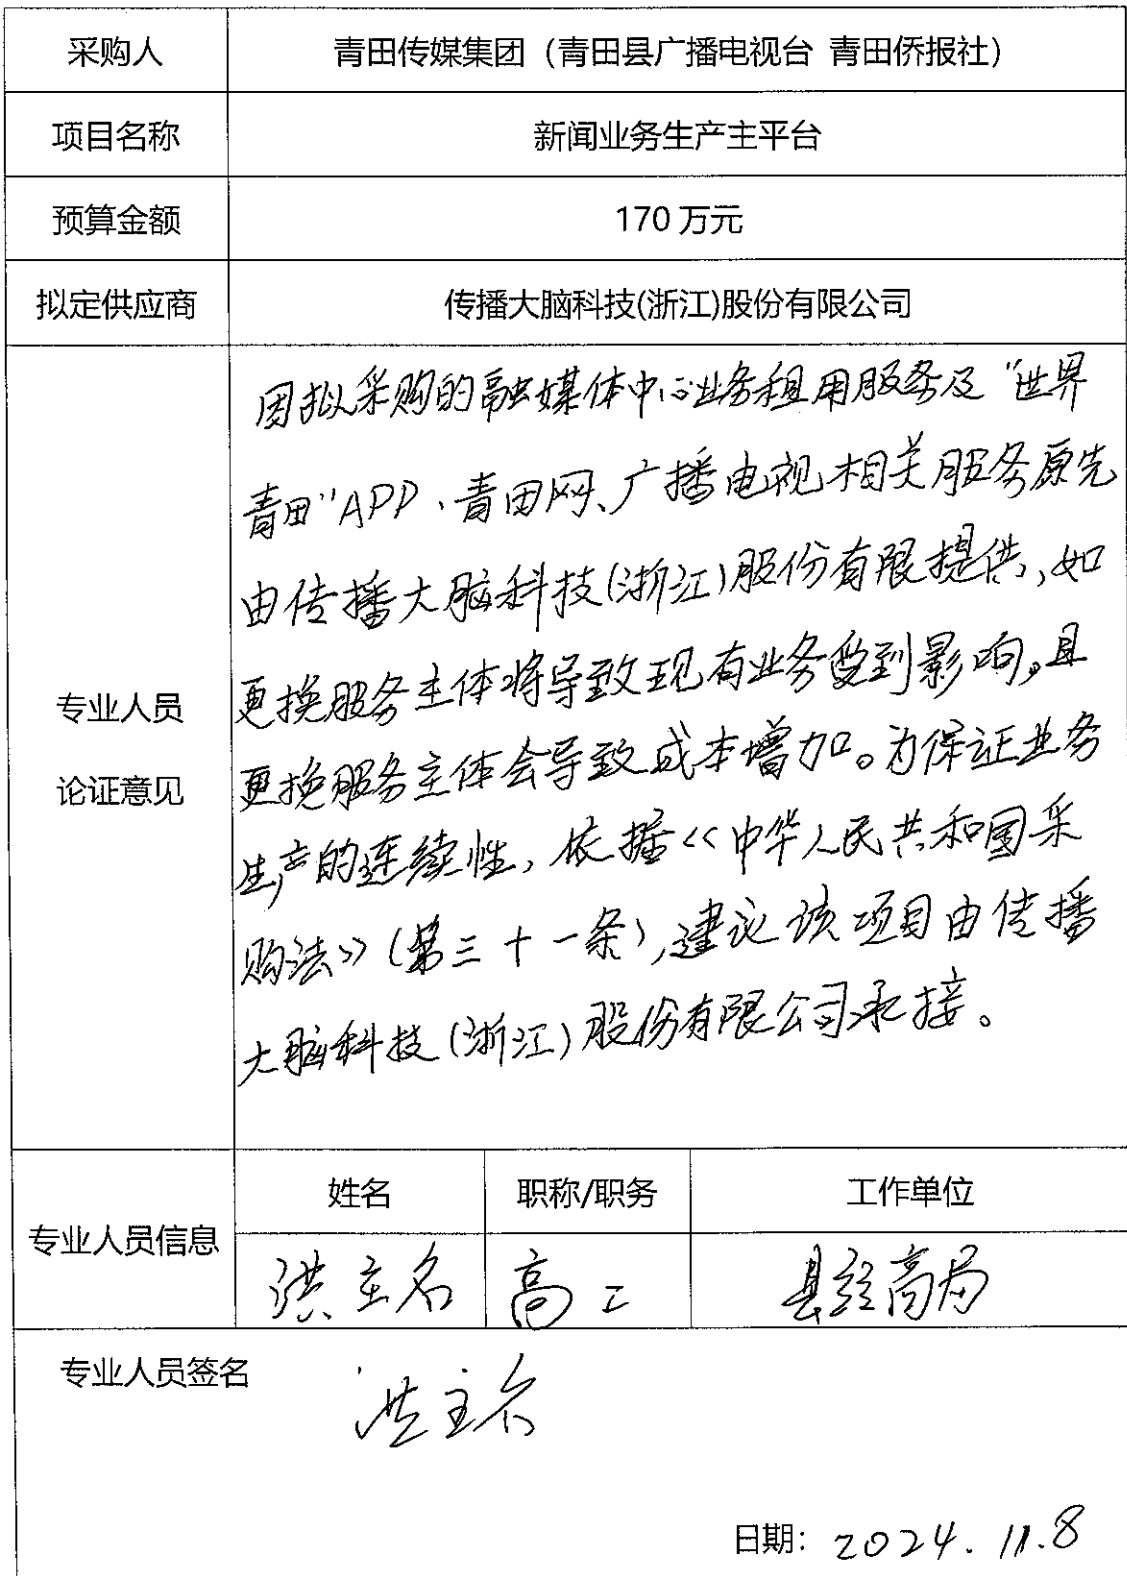 采购人 青田传媒集团（青田县广播电视台 青田侨报社）
项目名称 新闻业务生产主平台
预算金额 170万元
拟定供应商 传播大脑科技(浙江)股份有限公司
专业人员
论证意见
因拟采购的融媒体中心业务租用服务及“世界
青田”APP、青田网、广播电视相关服务原先
由传播大脑科技(浙江)股份有限提供,如
更换服务主体将导致现有业务受到影响。且
更换服务主体会导致成本增加。为保证业务
生产的连续性,依据《中华人民共和国采
购法》(第三十一条),建议该项目由传播
大脑科技(浙江)股份有限公司承接。
专业人员信息
姓名 职称/职务 工作单位
洪主名 高工 县经商局
专业人员签名
洪主名
日期: 2024.11.8